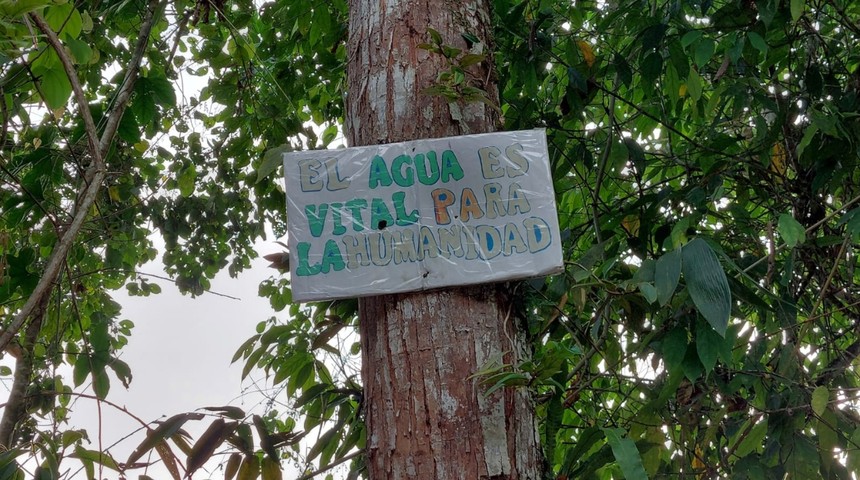 EL AGUA ES
VITAL PARA
LA HUMANIDAD